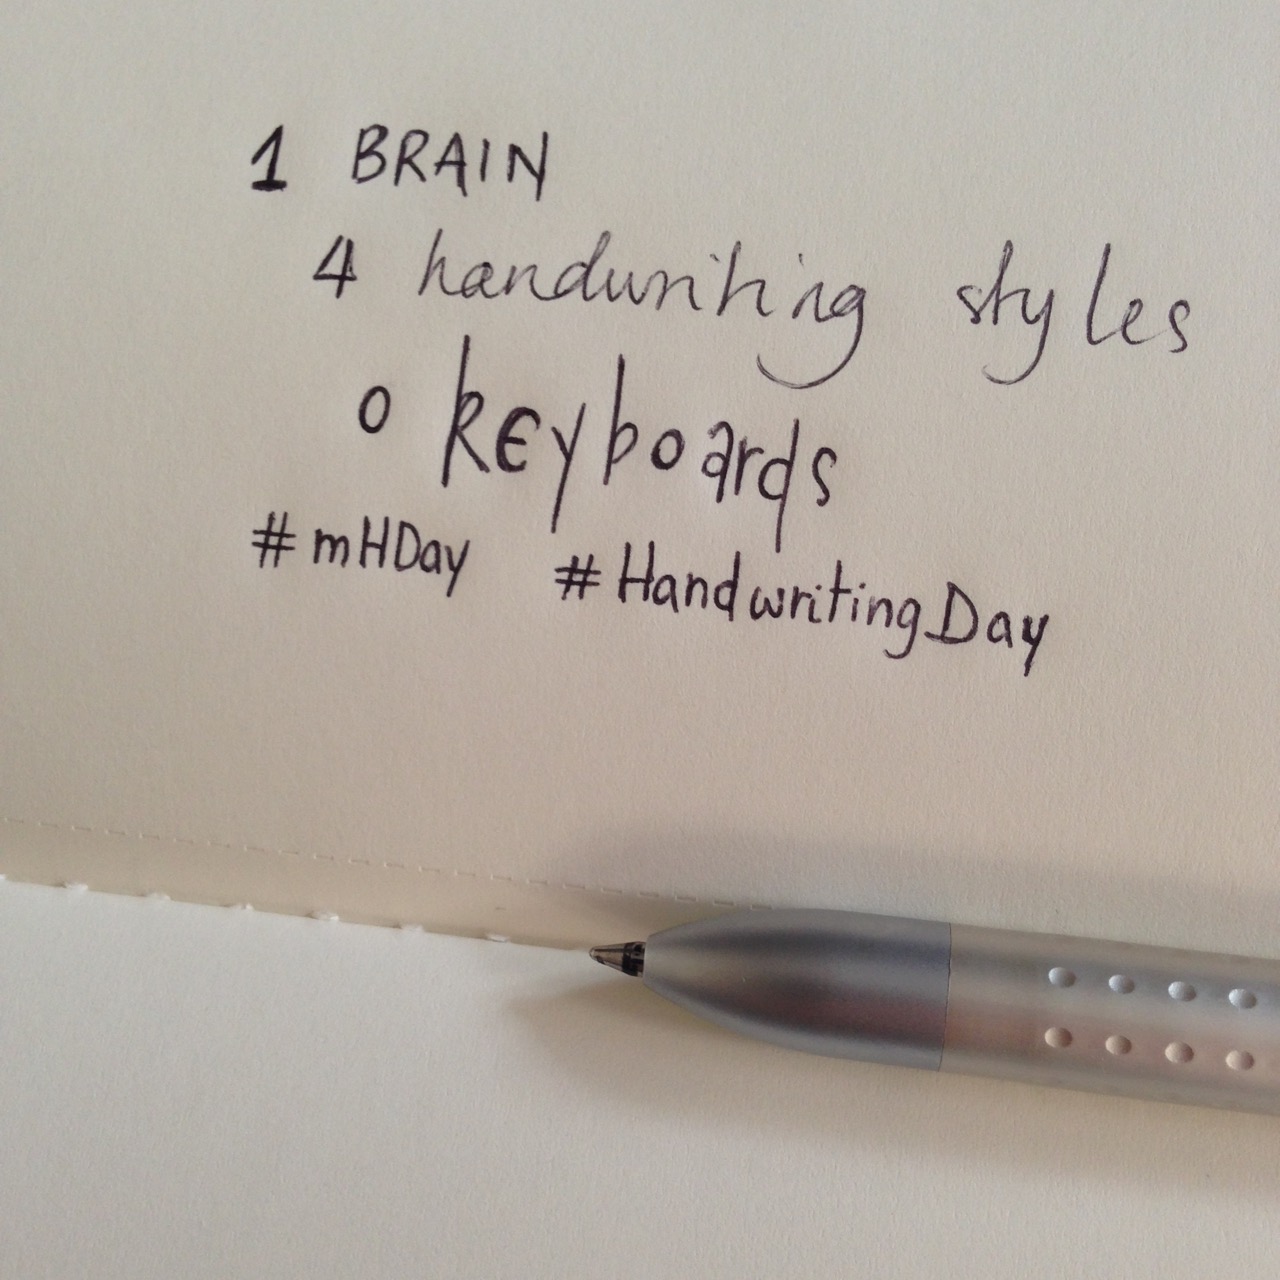 1 BRAIN
4 handwriting styles
0 keyboards
#mHDay #HandwritingDay